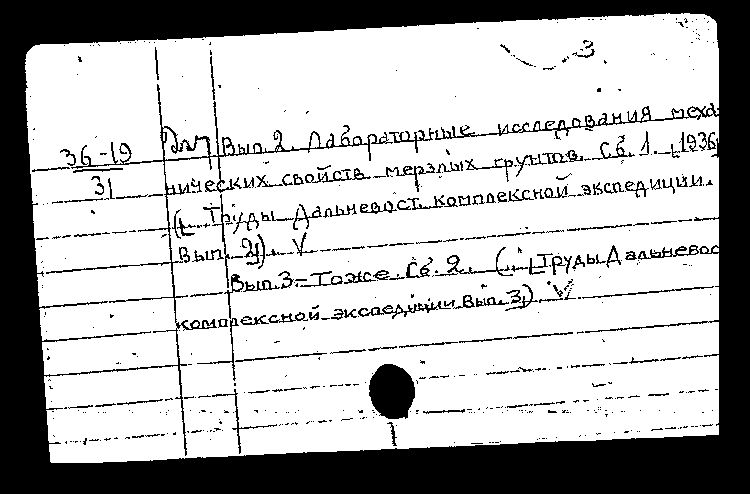 3
36-19
31
Вып. 2. Лабораторные исследования меха-
нических свойств мерзлых грунтов. Сб. 1. [1936]
([Труды Дальневост. комплексной экспедиции.
Вып. 2]). V
Вып. 3 - Тоже. Сб. 2. (... [Труды Дальневос
комплексной экспедиции Вып. 3]) V